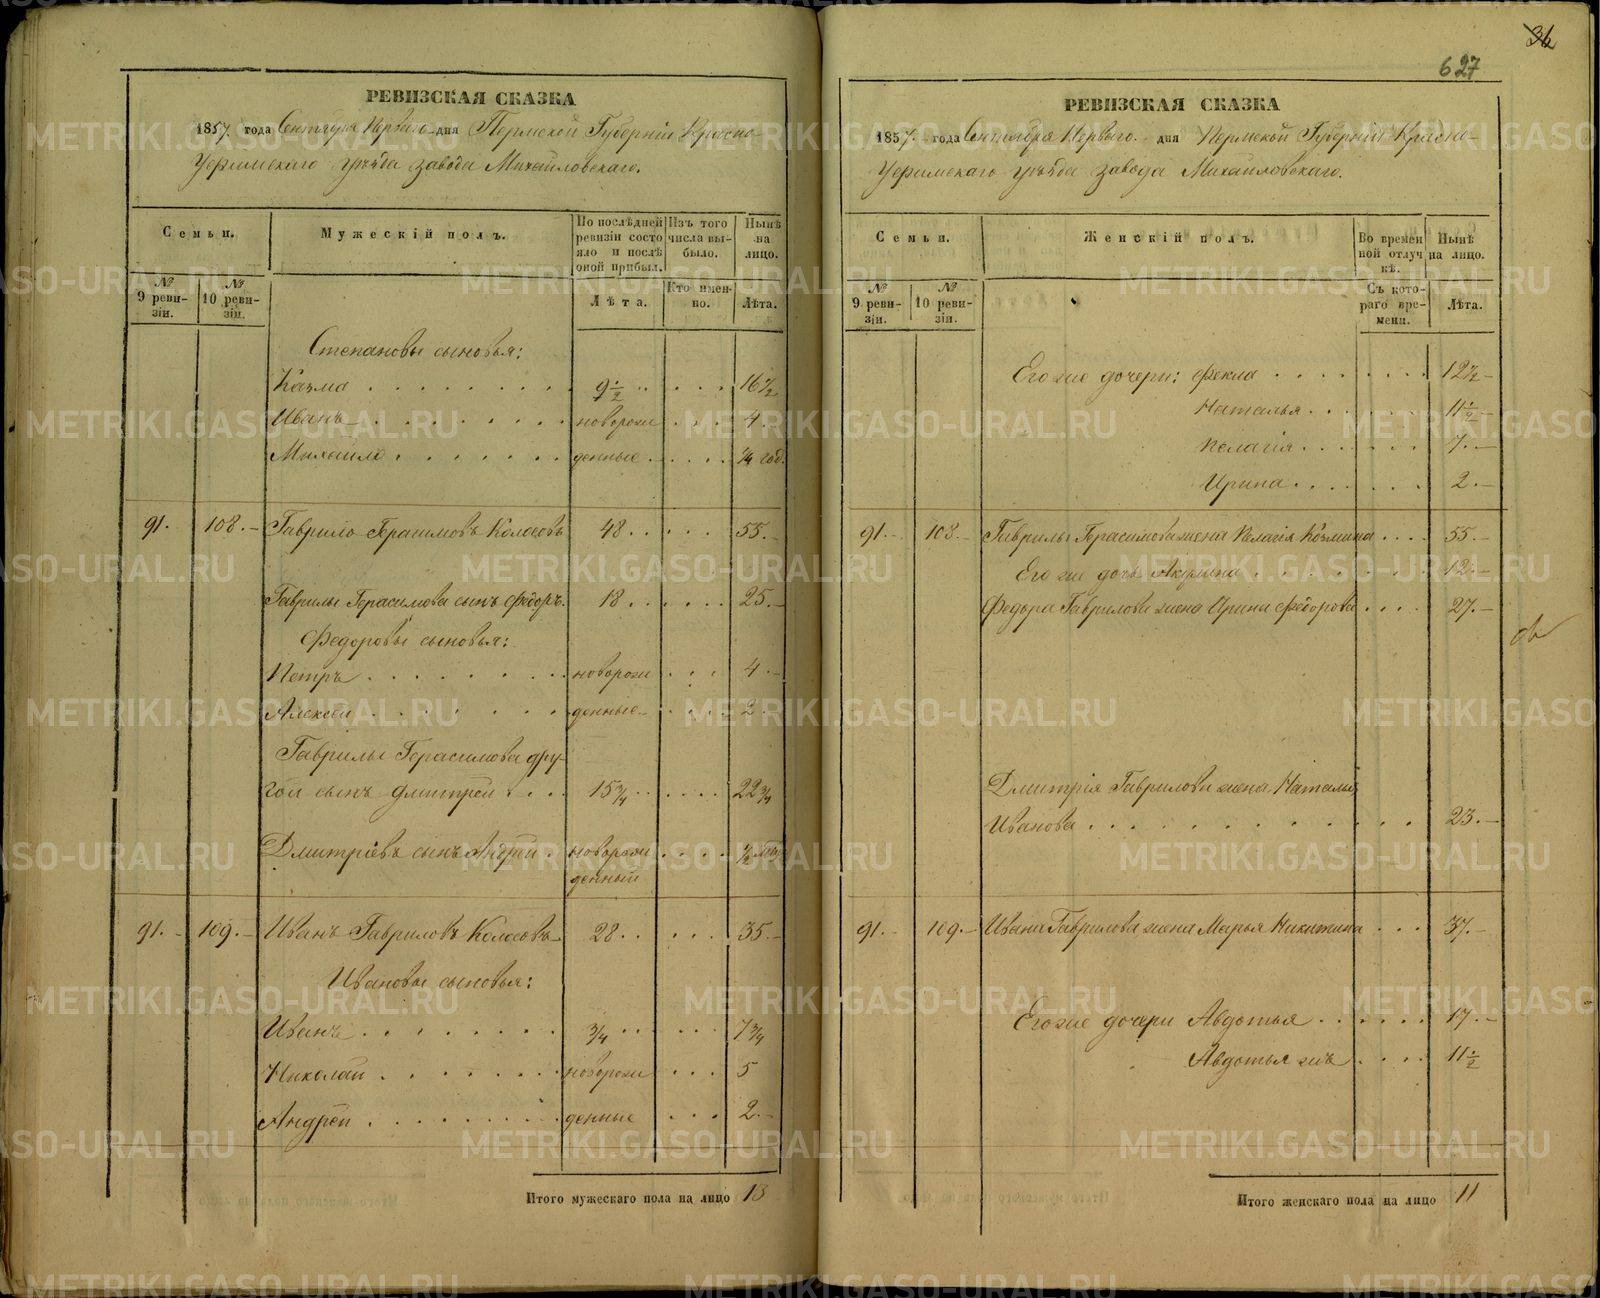 36
627
РЕВИЗСКАЯ СКАЗКА
1857. года Сентября Перваго дня Пермской Губерніи Красно-
Уфимскаго уѣзда завода Михайловскаго.
Семьи.
Мужескій полъ.
По послѣдней ревизіи состояло и послѣ оной прибыл.
Изъ того числа выбыло.
Нынѣ на лицо.
№ 9 ревизіи.
№ 10 ревизіи.
Лѣта.
Кто именно.
Лѣта.
Степановы сыновья:
Казма . . . 9 ½ . . . 16 ½
Иванъ . . . новорож . . . 4.
Михайло . . . денные . . . ¼ год.
91. 108. Гаврило Герасимовъ Колосовъ 48 . . . 55.
Гаврилы Герасимова сынъ Федоръ. 18 . . . 25.
Федоровы сыновья:
Петръ . . . новорож . . . 4.
Алексей . . . денные . . . 2.
Гаврилы Герасимова дру-
гой сынъ Дмитрей . . . 15 ¾ . . . 22 ¾
Дмитріевъ сынъ Андрей . новорож . . . ½
денный
91. 109. Иванъ Гавриловъ Колосовъ 28 . . . 35.
Ивановы сыновья:
Иванъ . . . ¾ . . . 7 ¾
Николай . . . новорож . . . 5
Андрей . . . денные . . . 2.
Итого мужескаго пола на лицо 13
РЕВИЗСКАЯ СКАЗКА
1857. года Сентября Перваго. дня Пермской Губерніи Красно-
Уфимскаго уѣзда завода Михайловскаго.
Семьи.
Женскій полъ.
Во временной отлучкѣ.
Нынѣ на лицо.
№ 9 ревизіи.
№ 10 ревизіи.
Съ котораго времени.
Лѣта.
Его же дочери: Фекла . . . 12 ½
Наталья . . . 11 ½
Пелагія . . . 7.
Ирина . . . 2.
91. 108. Гаврилы Герасимова жена Пелагія Козмина . . . 55.
Его же дочь Акулина . . . 12.
Федора Гаврилова жена Ирина Федорова . . . 27.
Дмитрія Гаврилова жена Наталья
Иванова . . . 23.
91. 109. Ивана Гаврилова жена Марья Никитина . . . 37.
Его же дочери Авдотья . . . 17.
Авдотья жъ . . . 11 ½
Итого женскаго пола на лицо 11
METRIKI.GASO-URAL.RU